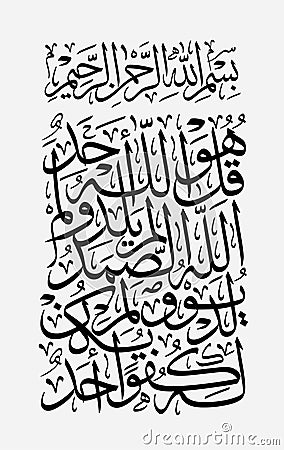 بسم الله الرحمن الرحيم
قل هو الله أحد
الله الصمد لم يلد ولم
يولد ولم يكن
له كفوا أحد
dreamstime.com